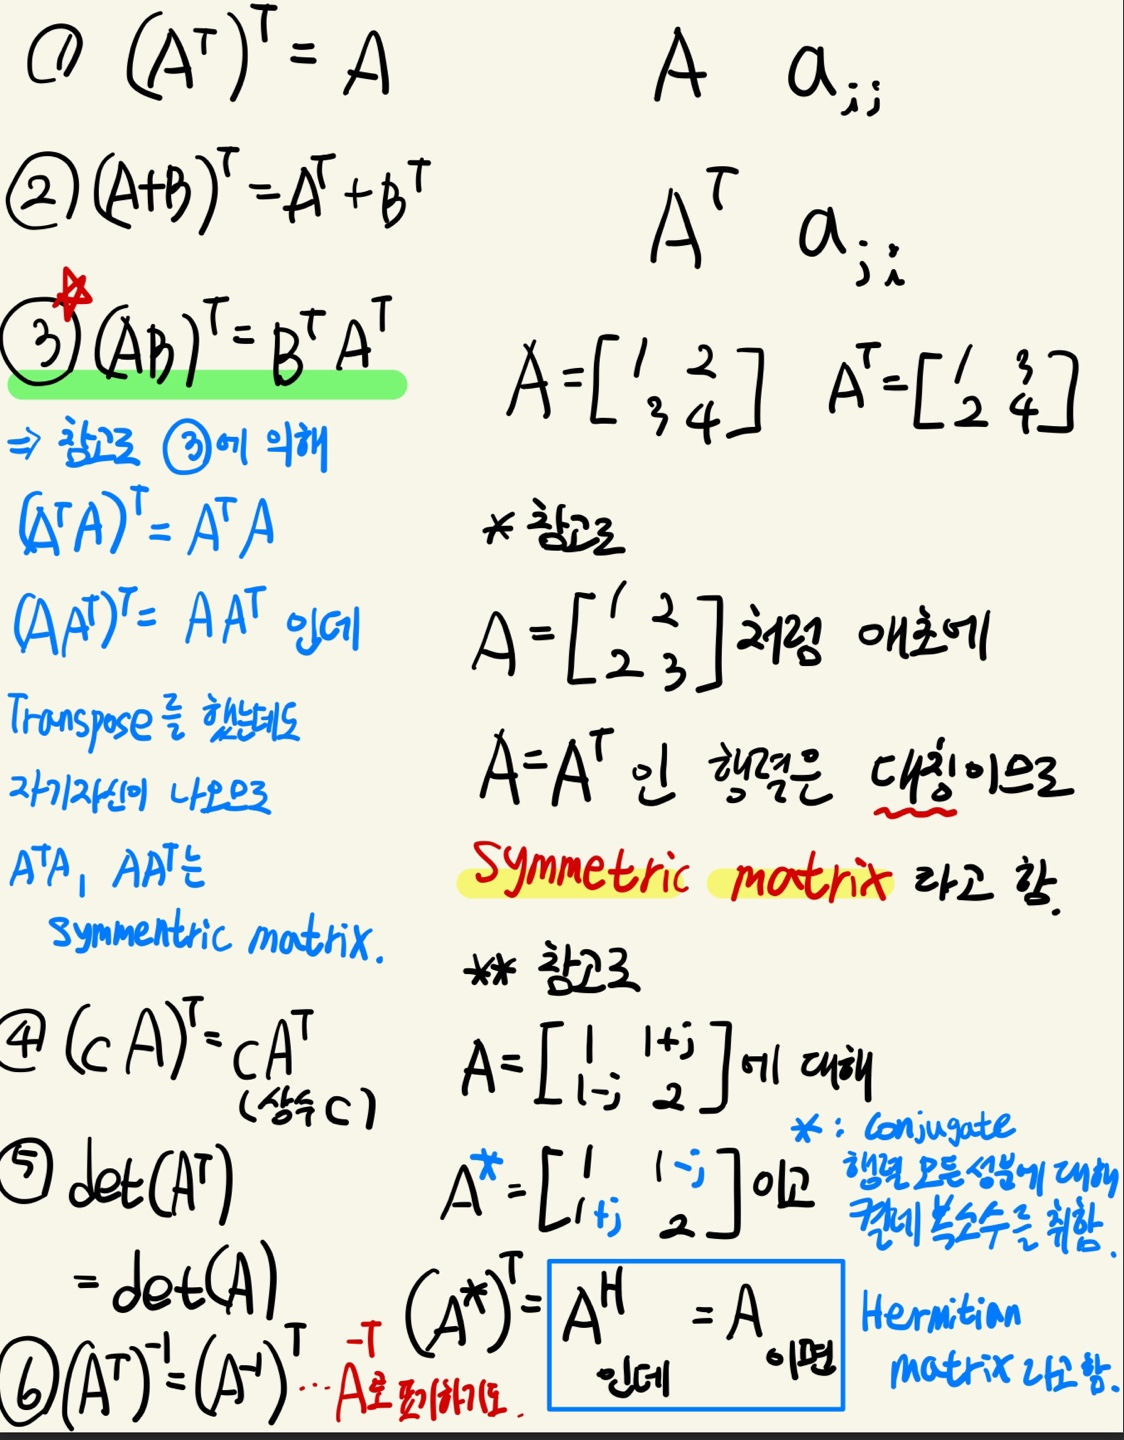 ① (Aᵀ)ᵀ = A
② (A+B)ᵀ = Aᵀ + Bᵀ
③ (AB)ᵀ = BᵀAᵀ
⇒ 참고로 ③에 의해
(AᵀA)ᵀ = AᵀA
(AAᵀ)ᵀ = AAᵀ 인데
Transpose를 했는데도
자기자신이 나오므로
AᵀA, AAᵀ는
Symmentric matrix.
④ (cA)ᵀ = cAᵀ
(상수 c)
⑤ det(Aᵀ)
= det(A)
⑥ (Aᵀ)⁻¹ = (A⁻¹)ᵀ … A⁻ᵀ로 표기하기도.
A aᵢⱼ
Aᵀ aⱼᵢ
A = [1 2
3 4] Aᵀ = [1 3
2 4]
* 참고로
A = [1 2
2 3] 처럼 애초에
A = Aᵀ 인 행렬은 대칭이므로
Symmetric matrix 라고 함.
** 참고로
A = [1 1+j
1-j 2] 에 대해
A* = [1 1-j
1+j 2] 이고
* : Conjugate
행렬 모든 성분에 대해
켤레 복소수를 취함.
(A*)ᵀ = Aᴴ = A
인데 이면
Hermitian
matrix 라고 함.